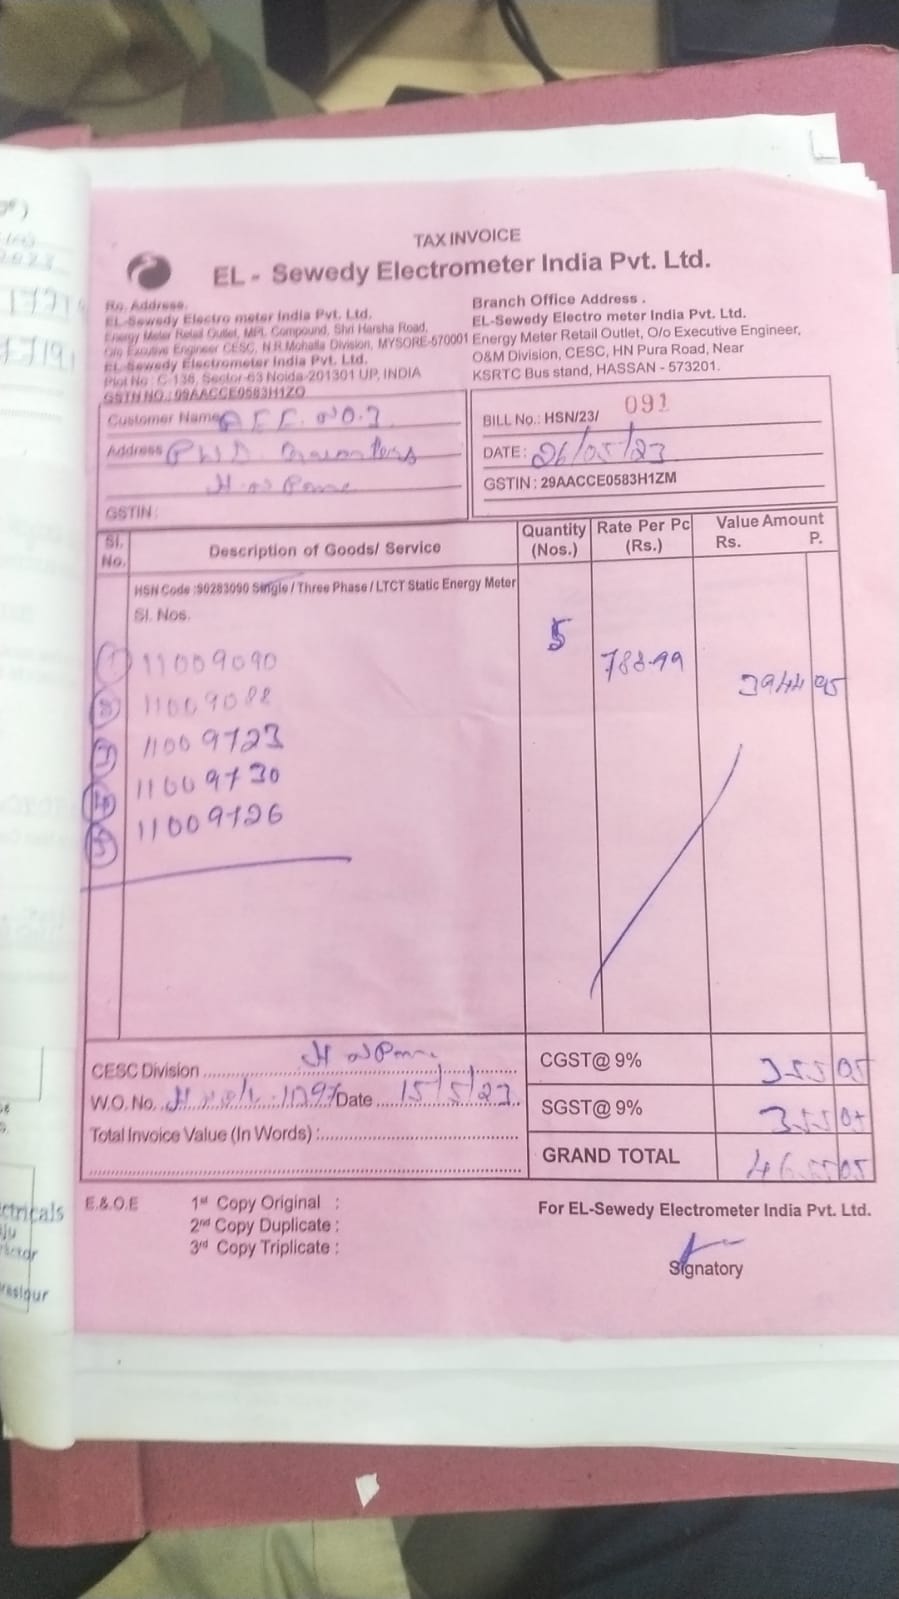 TAX INVOICE
EL - Sewedy Electrometer India Pvt. Ltd.
Ro. Address.
EL-Sewedy Electro meter India Pvt. Ltd.
Energy Meter Retail Outlet, MPL Compound, Shri Harsha Road,
O/o Exicutive Engineer CESC, N.R.Mohalla Division, MYSORE-570001
EL-Sewedy Electrometer India Pvt. Ltd.
Plot No : C-136, Sector-63 Noida-201301 UP, INDIA
GSTN NO.: 09AACCE0583H1ZO
Branch Office Address .
EL-Sewedy Electro meter India Pvt. Ltd.
Energy Meter Retail Outlet, O/o Executive Engineer,
O&M Division, CESC, HN Pura Road, Near
KSRTC Bus stand, HASSAN - 573201.
Customer Name
Address PWD
GSTIN :
BILL No.: HSN/23/ 091
DATE : 26/05/23
GSTIN : 29AACCE0583H1ZM
Sl. No. Description of Goods/ Service Quantity (Nos.) Rate Per Pc (Rs.) Value Amount Rs. P.
HSN Code :90283090 Single / Three Phase / LTCT Static Energy Meter
Sl. Nos.
5
788-99
3944 95
1 11009090
2 11009088
11009723
11009730
11009726
CESC Division
W.O. No. Date 15/5/23
Total Invoice Value (In Words) :
CGST@ 9% 355 05
SGST@ 9% 355 05
GRAND TOTAL 4655 05
E.&.O.E
1st Copy Original :
2nd Copy Duplicate :
3rd Copy Triplicate :
For EL-Sewedy Electrometer India Pvt. Ltd.
Signatory